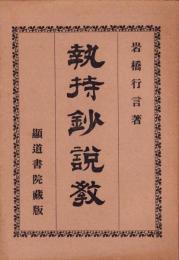 岩橋行言著
執持鈔說教
顯道書院藏版